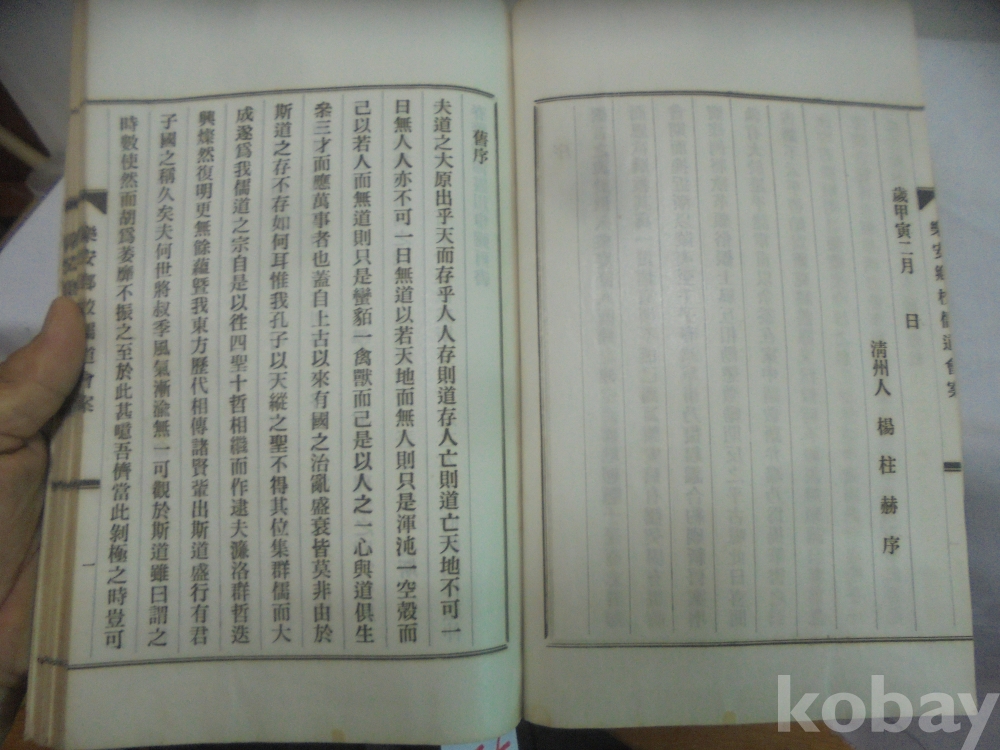 樂安鄕校儒道會案
歲甲寅二月　日
清州人　楊柱赫序
舊序
夫道之大原出乎天而存乎人人存則道存人亡則道亡天地不可一
日無人人亦不可一日無道以若天地而無人則只是渾沌一空殼而
己以若人而無道則只是蠻貊一禽獸而己是以人之一心與道俱生
叅三才而應萬事者也蓋自上古以來有國之治亂盛衰皆莫非由於
斯道之存不存如何耳惟我孔子以天縱之聖不得其位集群儒而大
成遂爲我儒道之宗自是以徃四聖十哲相繼而作逮夫濂洛群哲迭
興燦然復明更無餘蘊曁我東方歷代相傳諸賢輩出斯道盛行有君
子國之稱久矣夫何世將叔季風氣漸渝無一可觀於斯道雖曰謂之
時數使然而胡爲萎靡不振之至於此甚噫吾儕當此剝極之時豈可
樂安鄕校儒道會案
一
kobay